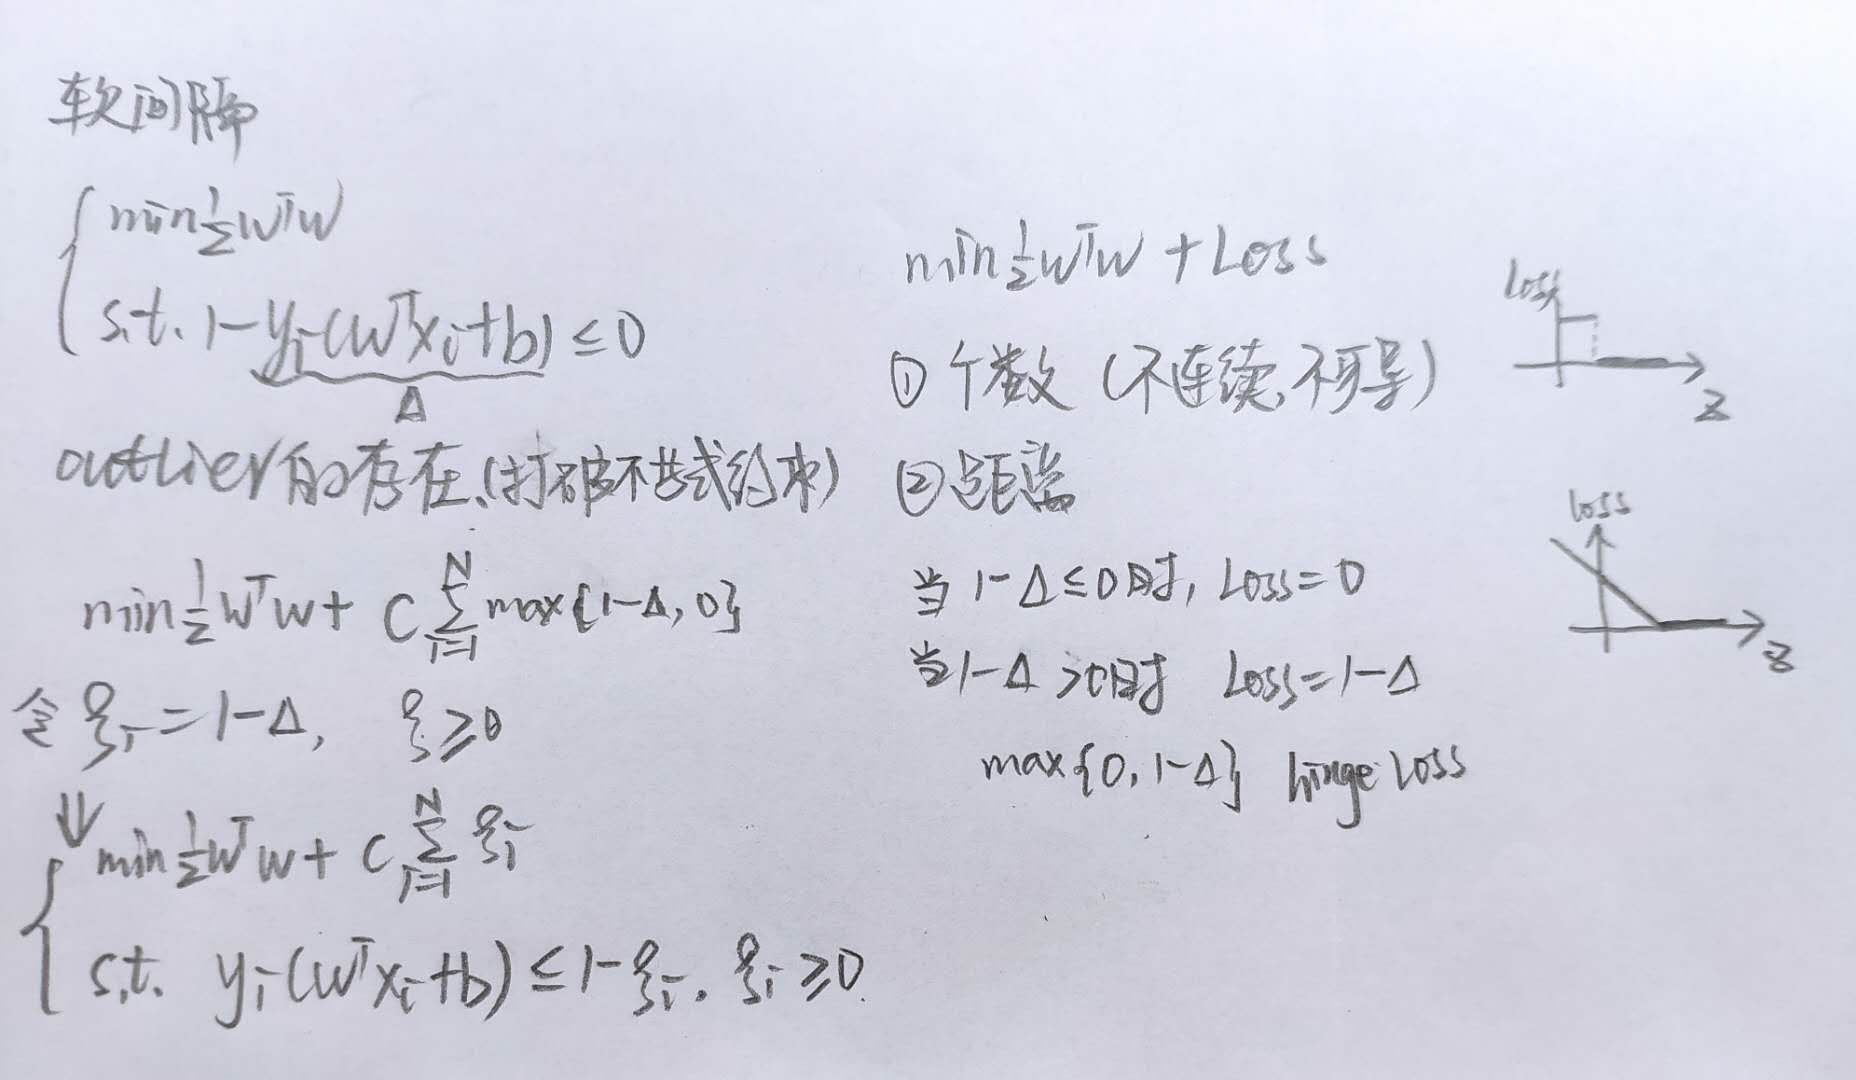 软间隔
min ½ wᵀw
s.t. 1-yᵢ(wᵀxᵢ+b) ≤ 0
Δ
outlier的存在(打破不等式约束)
min ½ wᵀw + C ∑ᵢ₌₁ᴺ max{1-Δ, 0}
令 ξᵢ = 1-Δ, ξ ≥ 0
⇓
min ½ wᵀw + C ∑ᵢ₌₁ᴺ ξᵢ
s.t. yᵢ(wᵀxᵢ+b) ≤ 1-ξᵢ. ξᵢ ≥ 0.
min ½ wᵀw + Loss
① 个数 (不连续,不可导)
② 距离
当 1-Δ ≤ 0时, Loss = 0
当 1-Δ > 0时 Loss = 1-Δ
max{0, 1-Δ} hinge loss
Loss
z
loss
z